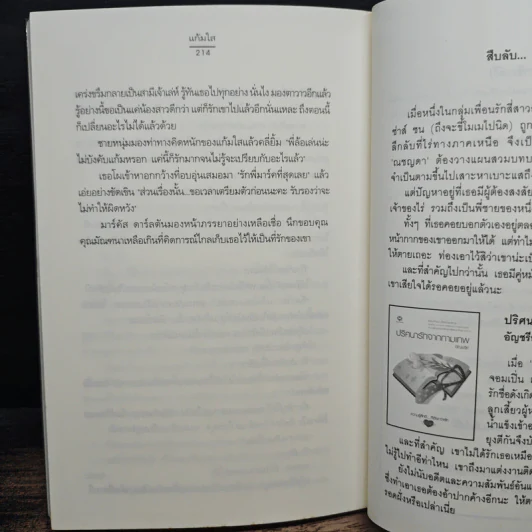 แก้มใส
214
เคร่งขรึมกลายเป็นสามีเจ้าเล่ห์ รู้ทันเธอไปทุกอย่าง นั่นไง มองตาวาวอีกแล้ว
รู้อย่างนี้ขอเป็นแค่น้องสาวดีกว่า แต่ก็รักเขาไปแล้วอีกนั่นแหละ ถึงตอนนี้
ก็เปลี่ยนอะไรไม่ได้แล้วด้วย
ชายหนุ่มมองท่าทางคิดหนักของแก้มใสแล้วคลี่ยิ้ม “พี่ล้อเล่นน่ะ
ไม่บังคับแก้มหรอก แค่นี้ก็รักมากจนไม่รู้จะเปรียบกับอะไรแล้ว”
เธอโผเข้าหาอกกว้างที่อบอุ่นเสมอมา “รักพี่มาร์คที่สุดเลย” แล้ว
เอ่ยอย่างขัดเขิน “ส่วนเรื่องนั้น...ขอเวลาเตรียมตัวก่อนนะคะ รับรองว่าจะ
ไม่ทำให้ผิดหวัง”
มาร์คัส ดาร์ลตันมองหน้าภรรยาอย่างเหลือเชื่อ นึกขอบคุณ
คุณมัณฑนาเหลือเกินที่คิดการณ์ไกลเก็บเธอไว้ให้เป็นที่รักของเขา
สืบลับ...
เมื่อหนึ่งในกลุ่มเพื่อนรักสี่สาว
ซ่าส์ ซน (ถึงจะขี้โมเมไปนิด) ถูก
ลึกลับที่ไร่ทางภาคเหนือ จึงเป็
‘ณชญดา’ ต้องวางแผนสวมบทบ
จำเป็นตามขึ้นไปเสาะหาเบาะแสถึ
แต่ปัญหาอยู่ที่เธอมีผู้ต้องสงสัย
เจ้าของไร่ รวมถึงเป็นพี่ชายของหนึ่
ทั้งๆ ที่เธอคอยบอกตัวเองอยู่ตลอ
หน้ากากของเขาออกมาให้ได้ แต่ทำไม
ให้ตายเถอะ ท่องเอาไว้สิว่าเขาน่ะเป็
และที่สำคัญไปกว่านั้น เธอมีคู่หมั้
เขาเสียใจได้รอคอยอยู่แล้วนะ
ปริศนารักจากกามเทพ
ปริศน
อัญชรี
เมื่อ ‘
จอมเป็น
รักชื่อดังเกิด
ลูกเสี้ยวผู้
น้ำแข็งเข้าอ
ยุงตีกันจึงบั
และที่สำคัญ เขาไม่ได้รักเธอเหมือ
ไม่รู้ไปทำอีท่าไหน เขาถึงมาแต่งงานติด
ยังไม่นับอดีตและความสัมพันธ์อันแ
ซึ่งทำเอาเธอต้องอ้าปากค้างอีกนะ ให้ต
รอดมั้งหรือเปล่าเนี่ย